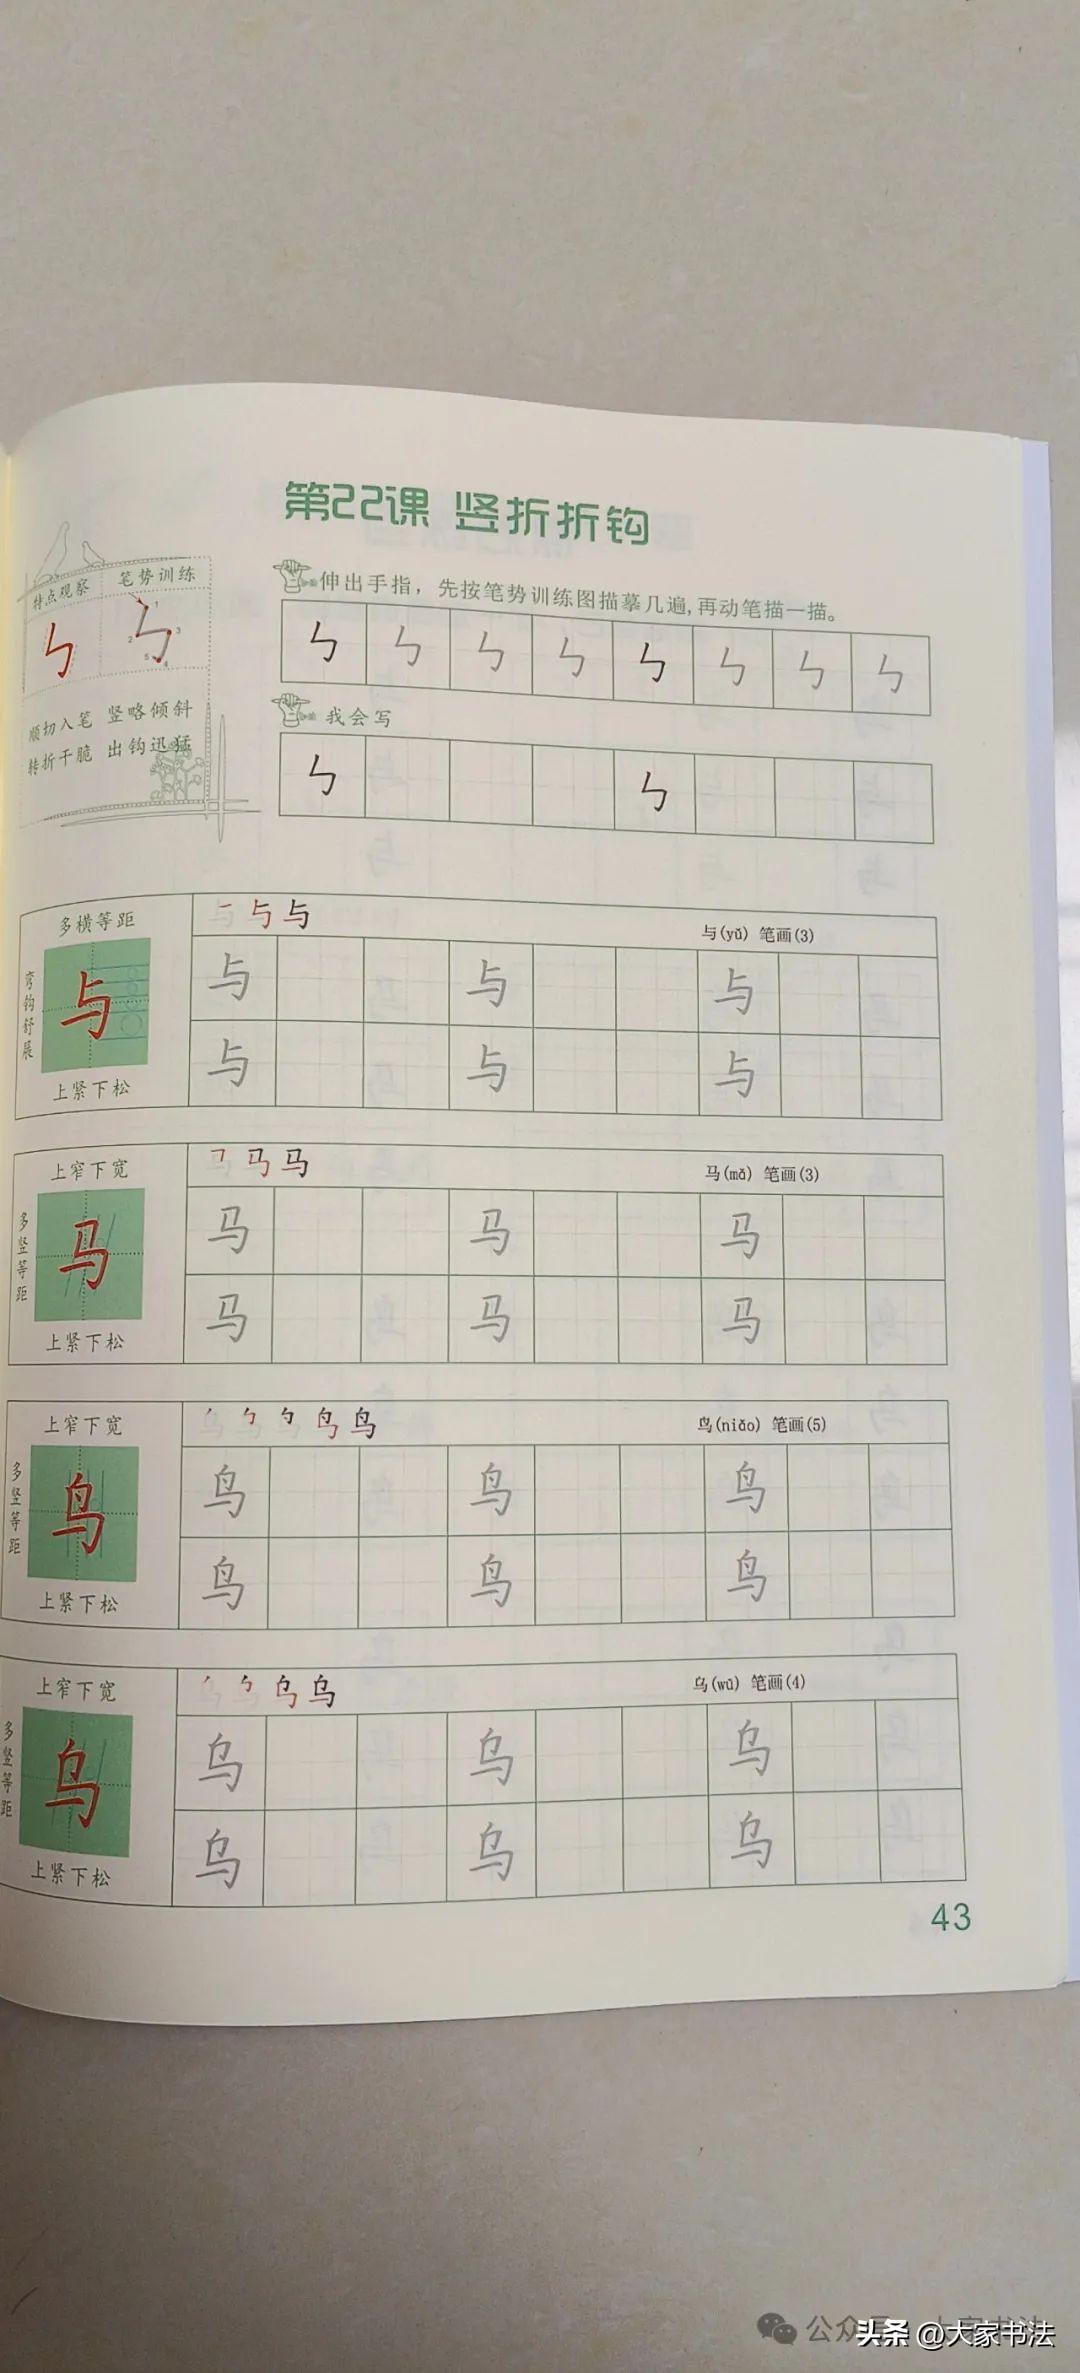 第22课 竖折折钩
特点观察 笔势训练
顺切入笔 竖略倾斜
转折干脆 出钩迅猛
伸出手指，先按笔势训练图描摹几遍，再动笔描一描。
我会写
多横等距
弯钩舒展
与
上紧下松
与 与 与
与(yǔ) 笔画(3)
与 与 与
与 与 与
上窄下宽
多竖等距
马
上紧下松
马 马
马(mǎ) 笔画(3)
马 马 马
马 马 马
上窄下宽
多竖等距
鸟
上紧下松
鸟 鸟
鸟(niǎo) 笔画(5)
鸟 鸟 鸟
鸟 鸟 鸟
上窄下宽
多竖等距
乌
上紧下松
乌 乌
乌(wū) 笔画(4)
乌 乌 乌
乌 乌 乌
43
公众号
头条 @大家书法